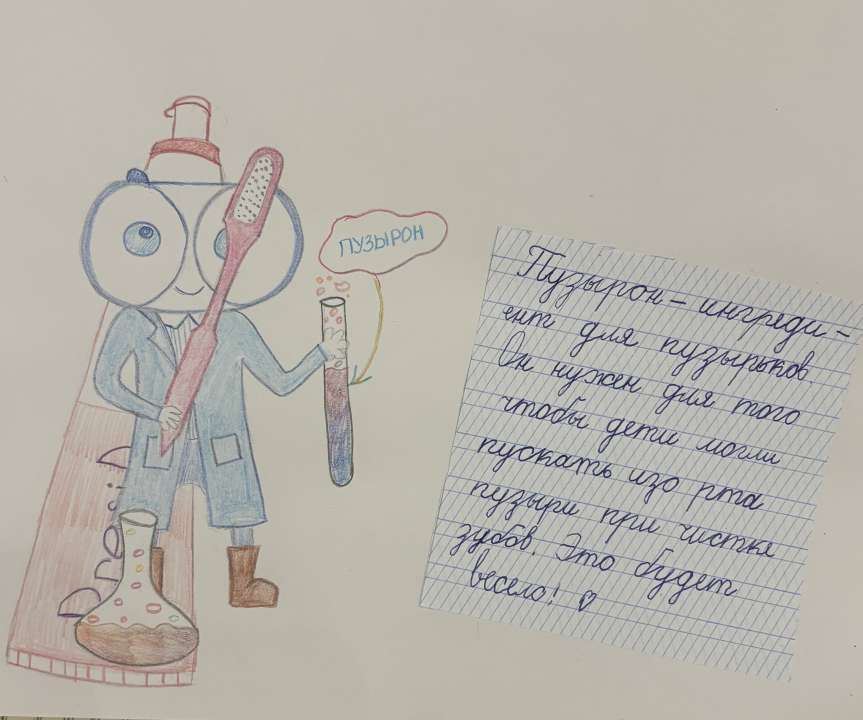 ПУЗЫРОН
Пузырон – ингреди-
ент для пузырьков.
Он нужен для того
чтобы дети могли
пускать изо рта
пузыри при чистке
зубов. Это будет
весело! ♡